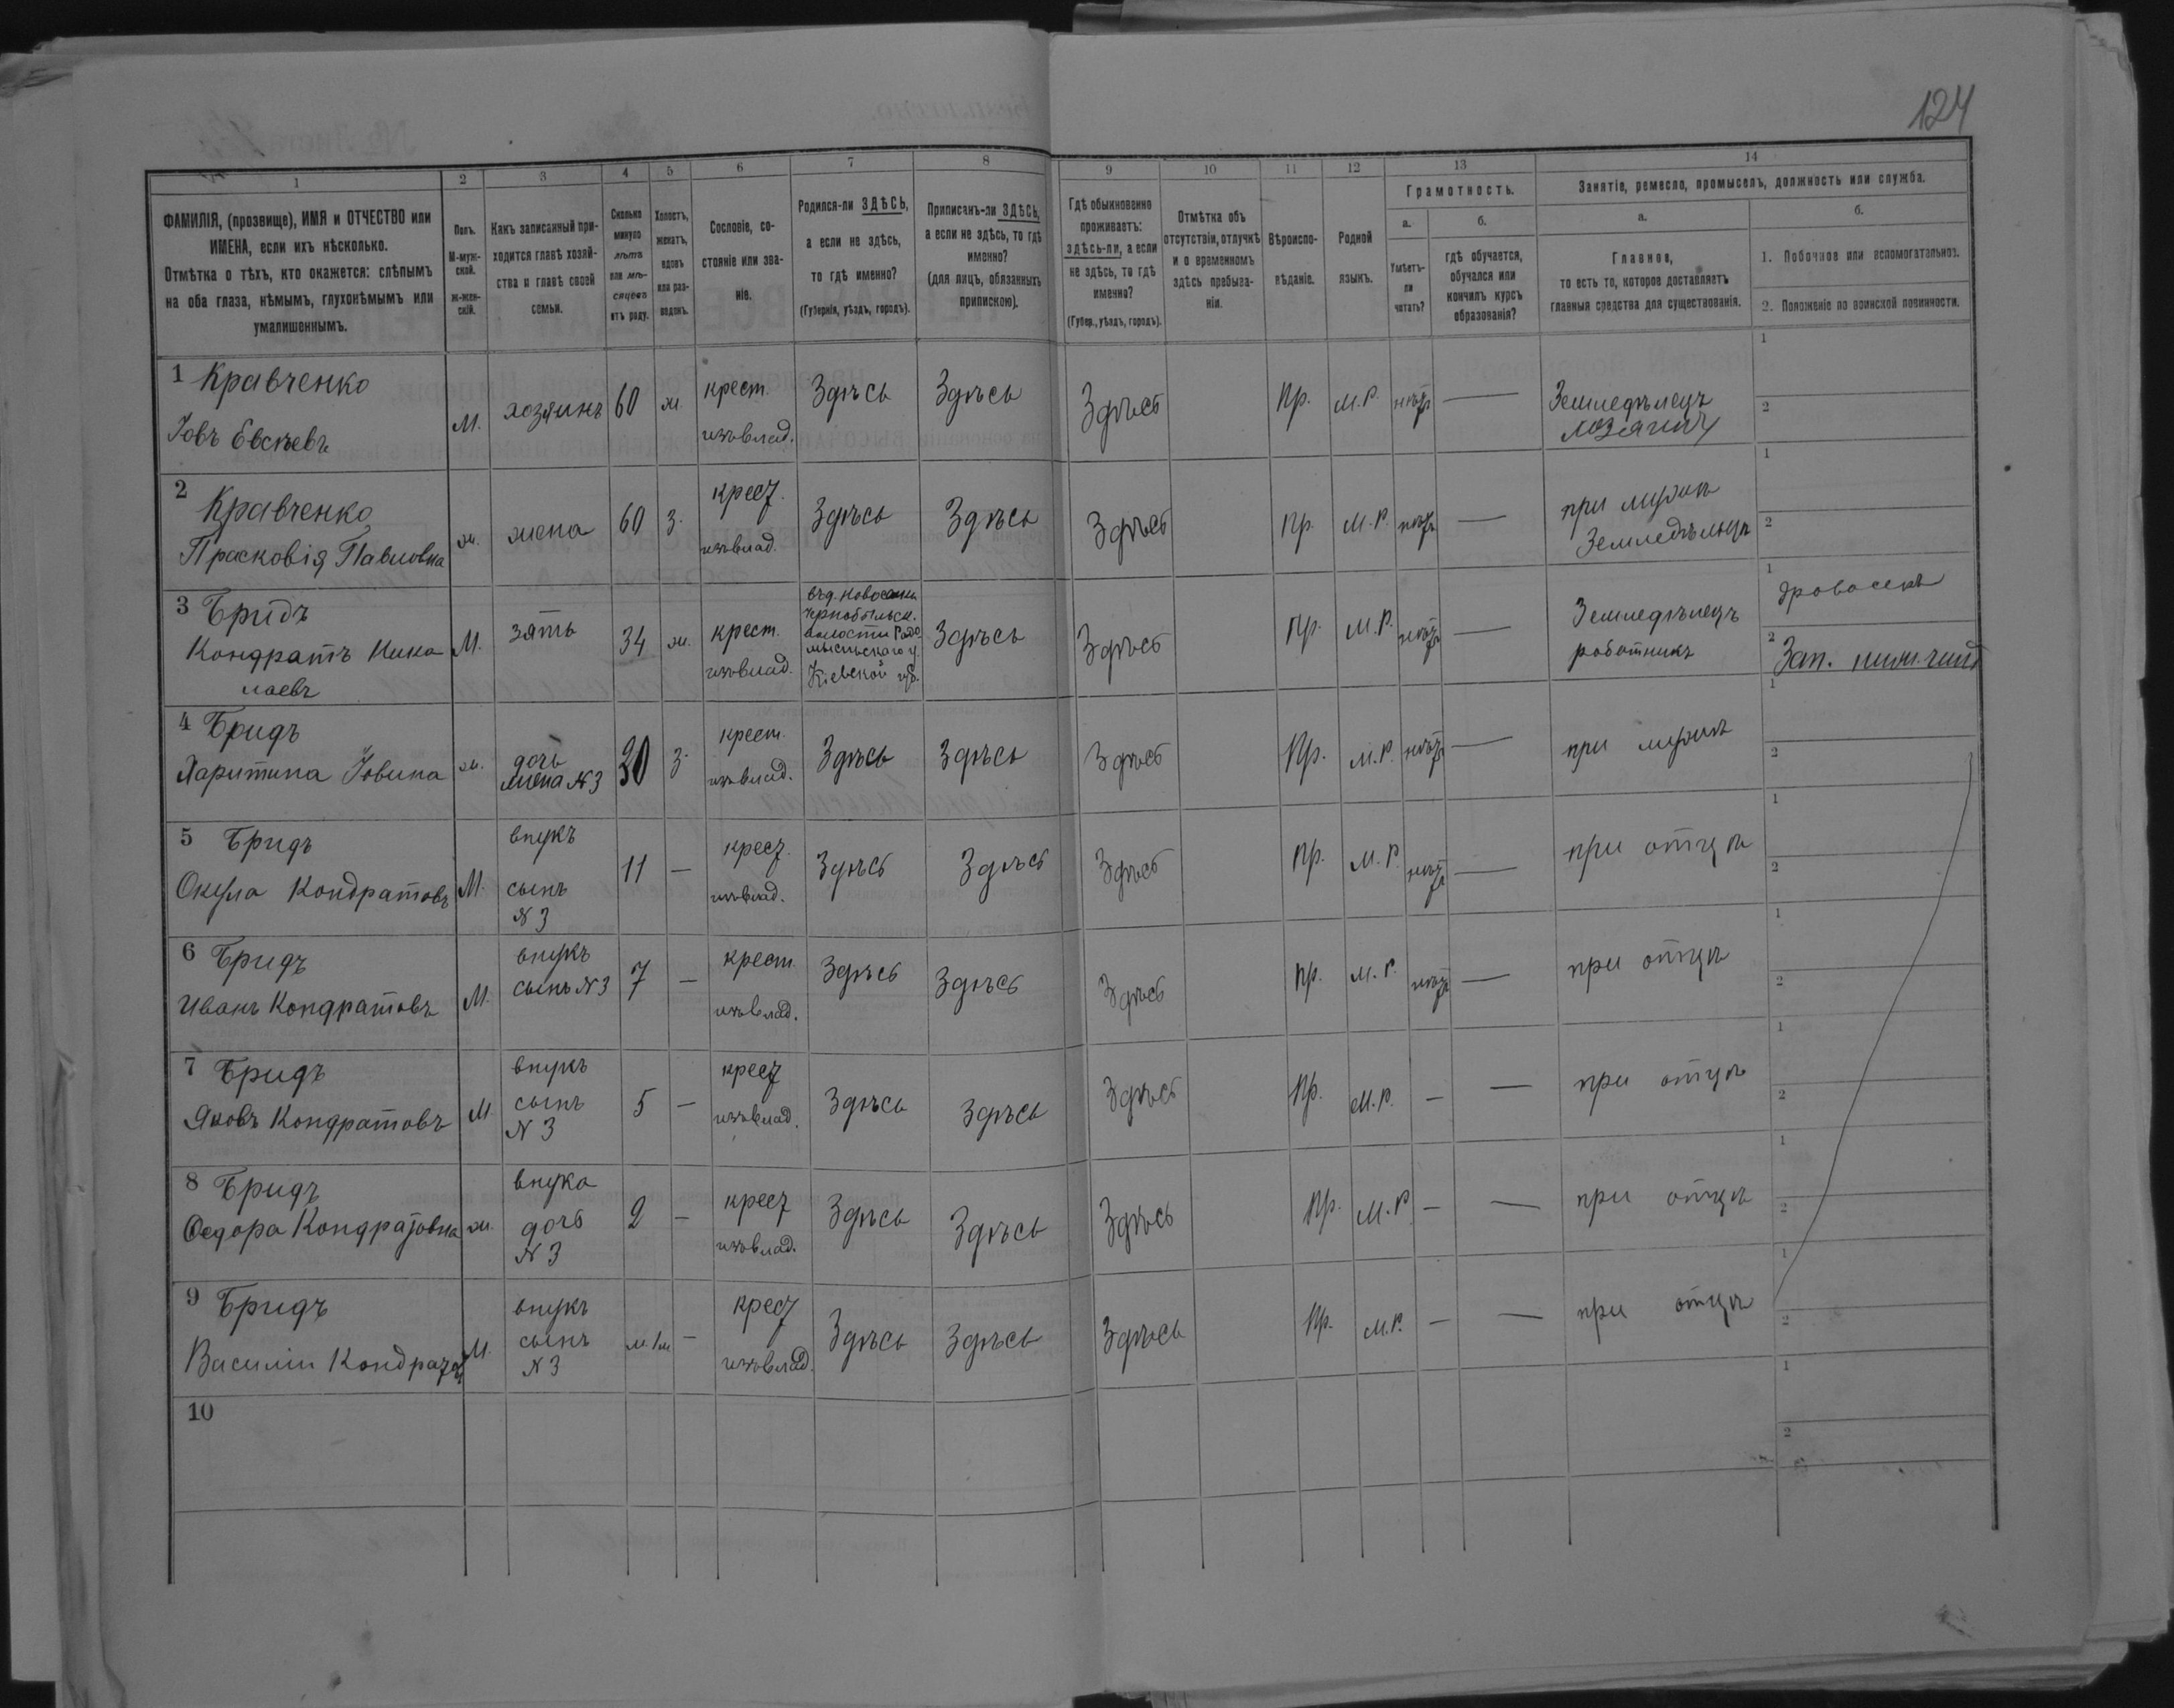 124
1 2 3 4 5 6 7 8 9 10 11 12 13 14
ФАМИЛІЯ, (прозвище), ИМЯ и ОТЧЕСТВО или
ИМЕНА, если ихъ нѣсколько.
Отмѣтка о тѣхъ, кто окажется: слѣпымъ
на оба глаза, нѣмымъ, глухонѣмымъ или
умалишеннымъ.
Полъ.
М-муж-
ской.
ж-жен-
скій.
Какъ записанный при-
ходится главѣ хозяй-
ства и главѣ своей
семьи.
Сколько
минуло
лѣтъ
или мѣ-
сяцевъ
отъ роду.
Холостъ,
женатъ,
вдовъ
или раз-
веденъ.
Сословіе, со-
стояніе или зва-
ніе.
Родился-ли ЗДѢСЬ,
а если не здѣсь,
то гдѣ именно?
(Губернія, уѣздъ, городъ).
Приписанъ-ли ЗДѢСЬ,
а если не здѣсь, то гдѣ
именно?
(для лицъ, обязанныхъ
припискою).
Гдѣ обыкновенно
проживаетъ:
здѣсь-ли, а если
не здѣсь, то гдѣ
именно?
(Губер., уѣздъ, городъ).
Отмѣтка объ
отсутствіи, отлучкѣ
и о временномъ
здѣсь пребыва-
ніи.
Вѣроиспо-
вѣданіе.
Родной
языкъ.
Грамотность.
а.
Умѣетъ-
ли
читать?
б.
гдѣ обучается,
обучался или
кончилъ курсъ
образованія?
Занятіе, ремесло, промыселъ, должность или служба.
а.
Главное,
то есть то, которое доставляетъ
главныя средства для существованія.
б.
1. Побочное или вспомогательное.
2. Положеніе по воинской повинности.
1 Кравченко
Іовъ Евсѣевъ
М.
хозяинъ
60
ж.
крест.
изъ влад.
Здѣсь
Здѣсь
Здѣсь
Пр.
М.Р.
нѣтъ
—
Земледѣлецъ
хозяинъ
1
2
2 Кравченко
Прасковія Павловна
ж.
жена
60
З.
крест.
изъ влад.
Здѣсь
Здѣсь
Здѣсь
Пр.
М.Р.
нѣтъ
—
при мужѣ
Земледѣлецъ
1
2
3 Бридъ
Кондратъ Нико
лаевъ
М.
зять
34
ж.
крест.
изъ влад.
въ д. Новоселки
Чернобыльск.
волости Радо
мысльскаго у.
Кіевской губ.
Здѣсь
Здѣсь
Пр.
М.Р.
нѣтъ
—
Земледѣлецъ
работникъ
1 дровосекъ
2 Зап. нижн. чинъ
4 Бридъ
Харитина Іовина
ж.
дочь
жена №3
30
З.
крест.
изъ влад.
Здѣсь
Здѣсь
Здѣсь
Пр.
М.Р.
нѣтъ
—
при мужѣ
1
2
5 Бридъ
Окула Кондратовъ
М.
внукъ
сынъ
№ 3
11
—
крест.
изъ влад.
Здѣсь
Здѣсь
Здѣсь
Пр.
М.Р.
нѣтъ
—
при отцѣ
1
2
6 Бридъ
Иванъ Кондратовъ
М.
внукъ
сынъ №3
7
—
крест.
изъ влад.
Здѣсь
Здѣсь
Здѣсь
Пр.
М.Р.
нѣтъ
—
при отцѣ
1
2
7 Бридъ
Яковъ Кондратовъ
М.
внукъ
сынъ
№ 3
5
—
крест
изъ влад.
Здѣсь
Здѣсь
Здѣсь
Пр.
М.Р.
—
—
при отцѣ
1
2
8 Бридъ
Федора Кондратовна
ж.
внука
дочь
№ 3
2
—
крест
изъ влад.
Здѣсь
Здѣсь
Здѣсь
Пр.
М.Р
—
—
при отцѣ
1
2
9 Бридъ
Василій Кондратов
М.
внукъ
сынъ
№ 3
—
крест
изъ влад.
Здѣсь
Здѣсь
Здѣсь
Пр.
М.Р.
—
—
при отцѣ
1
2
10
1
2